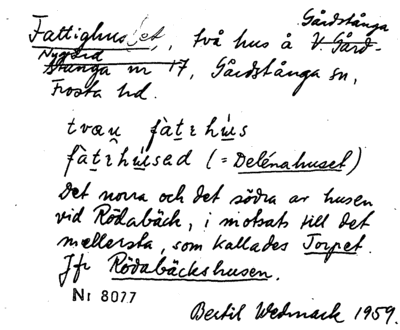 Gårdstånga
Fattighuset, två hus å V. Gård-
Nygård
stånga nr 17, Gårdstånga sn,
Frosta hd.
tvæu̯ fàt̠ɛhu̍s
fàt̠ɛhu̍sed (= Delénahuset)
Det norra och det södra av husen
vid Rödabäck, i motsats till det
mellersta, som kallades Torpet.
Jfr Rödabäckshusen.
Nr 8077
Bertil Wedmark 1959.